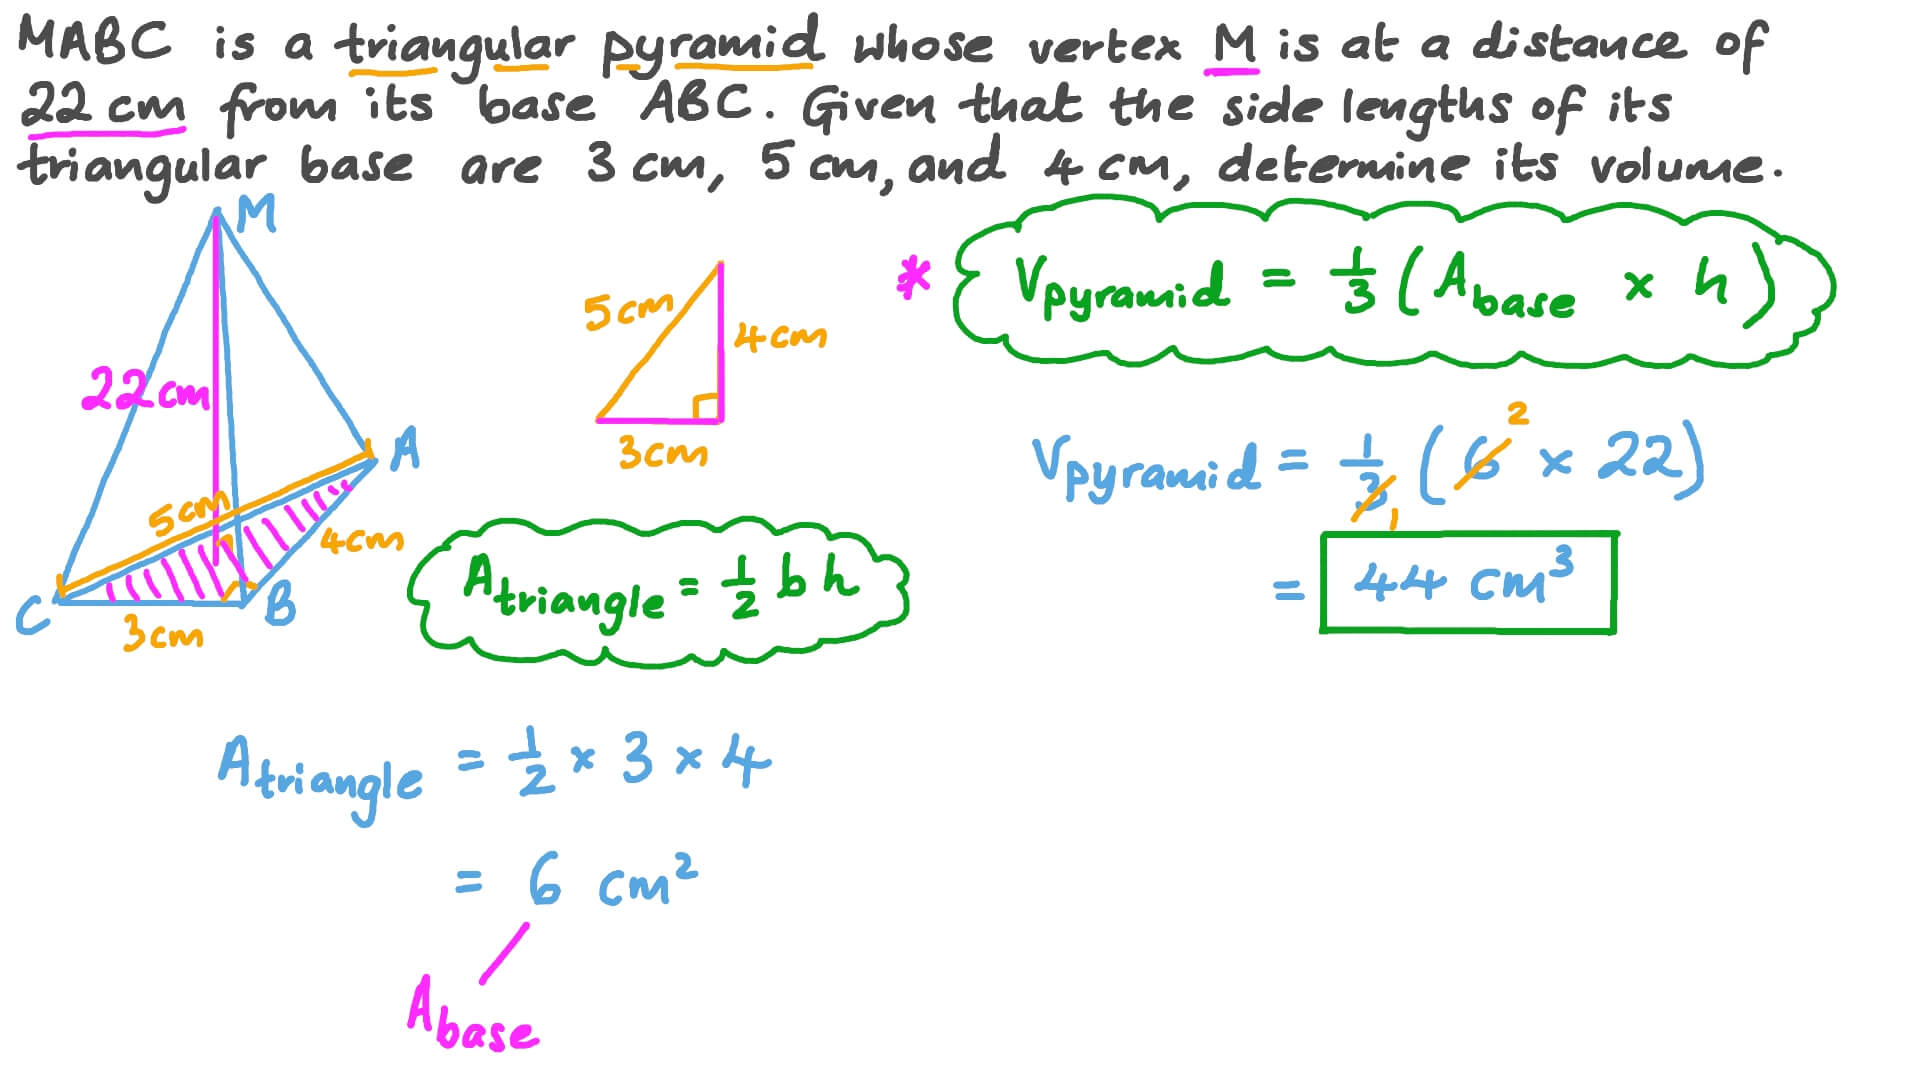 MABC is a triangular pyramid whose vertex M is at a distance of
22 cm from its base ABC. Given that the side lengths of its
triangular base are 3 cm, 5 cm, and 4 cm, determine its volume.
M
22 cm
A
5 cm
4 cm
C
B
3 cm
5 cm
4 cm
3 cm
* Vpyramid = 1/3 (Abase × h)
Atriangle = 1/2 b h
Vpyramid = 1/3 (6 × 22)
2
1
= 44 cm³
Atriangle = 1/2 × 3 × 4
= 6 cm²
Abase